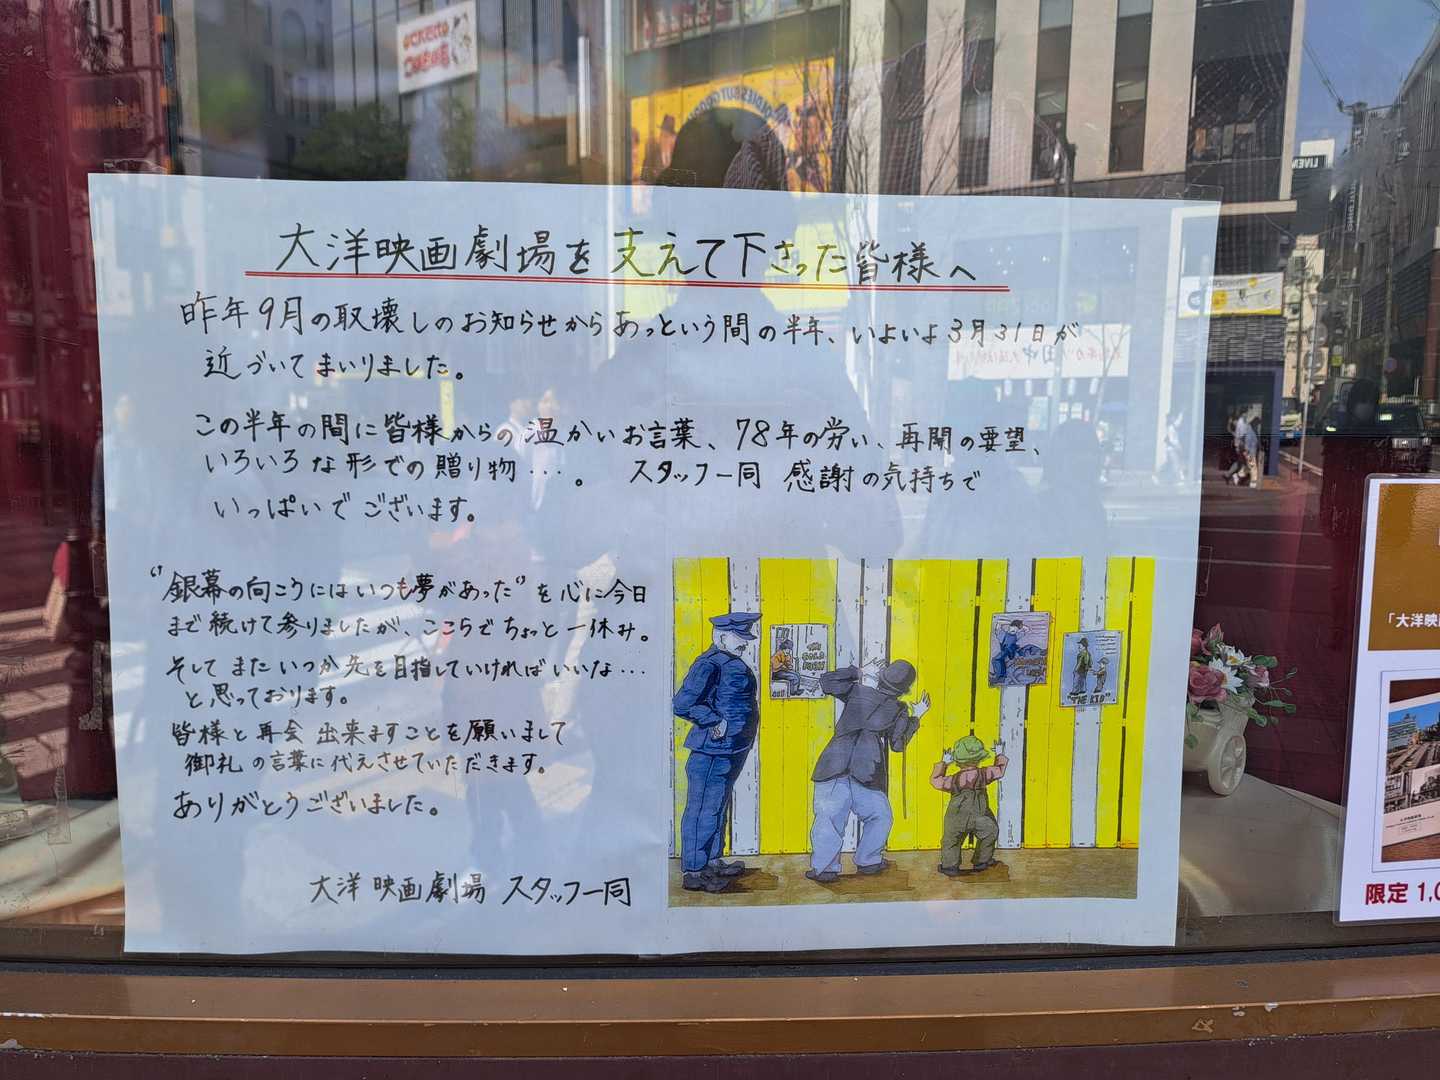 大洋映画劇場を支えて下さった皆様へ
昨年9月の取壊しのお知らせからあっという間の半年、いよいよ3月31日が
近づいてまいりました。
この半年の間に皆様からの温かいお言葉、78年の労い、再開の要望、
いろいろな形での贈り物・・・。 スタッフ一同 感謝の気持ちで
いっぱいでございます。
“銀幕の向こうにはいつも夢があった”を心に今日
まで続けて参りましたが、ここらでちょっと一休み。
そしてまたいつか先を目指していければいいな・・・
と思っております。
皆様と再会出来ますことを願いまして
御礼の言葉に代えさせていただきます。
ありがとうございました。
大洋映画劇場 スタッフ一同
THE
GOLD
RUSH
"THE KID"
「大洋映
限定 1,0